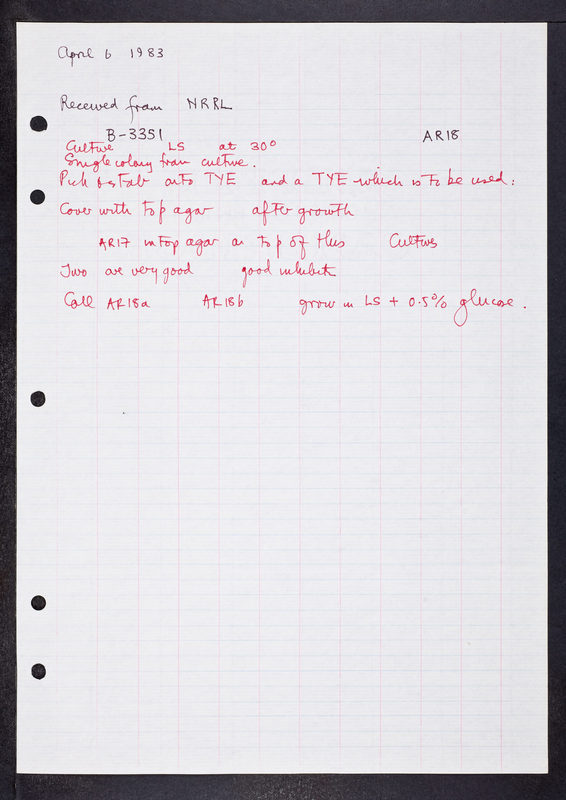 April 6 1983
Received from NRRL
B-3351 AR18
Culture LS at 30°
Single colony from culture.
Pick & stab onto TYE and a TYE which is to be used:
Cover with top agar after growth
AR17 in top agar on top of this Cultures
Two are very good good inhibit
Call AR18a AR18b grow in LS + 0.5% glucose.